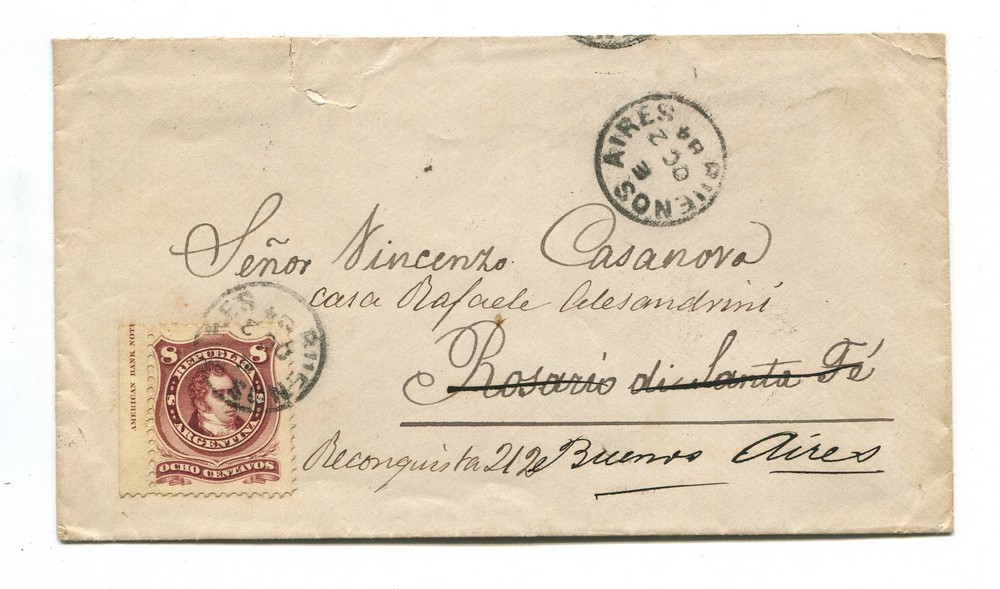 BUENOS AIRES
OC 2
84
Señor Vincenzo Casanova
casa Rafaele Alesandrini
Rosario di Santa Fé
Reconquista 212 Buenos Aires
AMERICAN BANK NOT
8 8
REPUBLICA
8 8
ARGENTINA
OCHO CENTAVOS